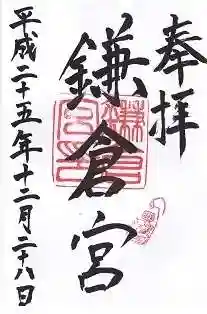 奉拝
鎌倉宮
平成二十五年十二月二十八日